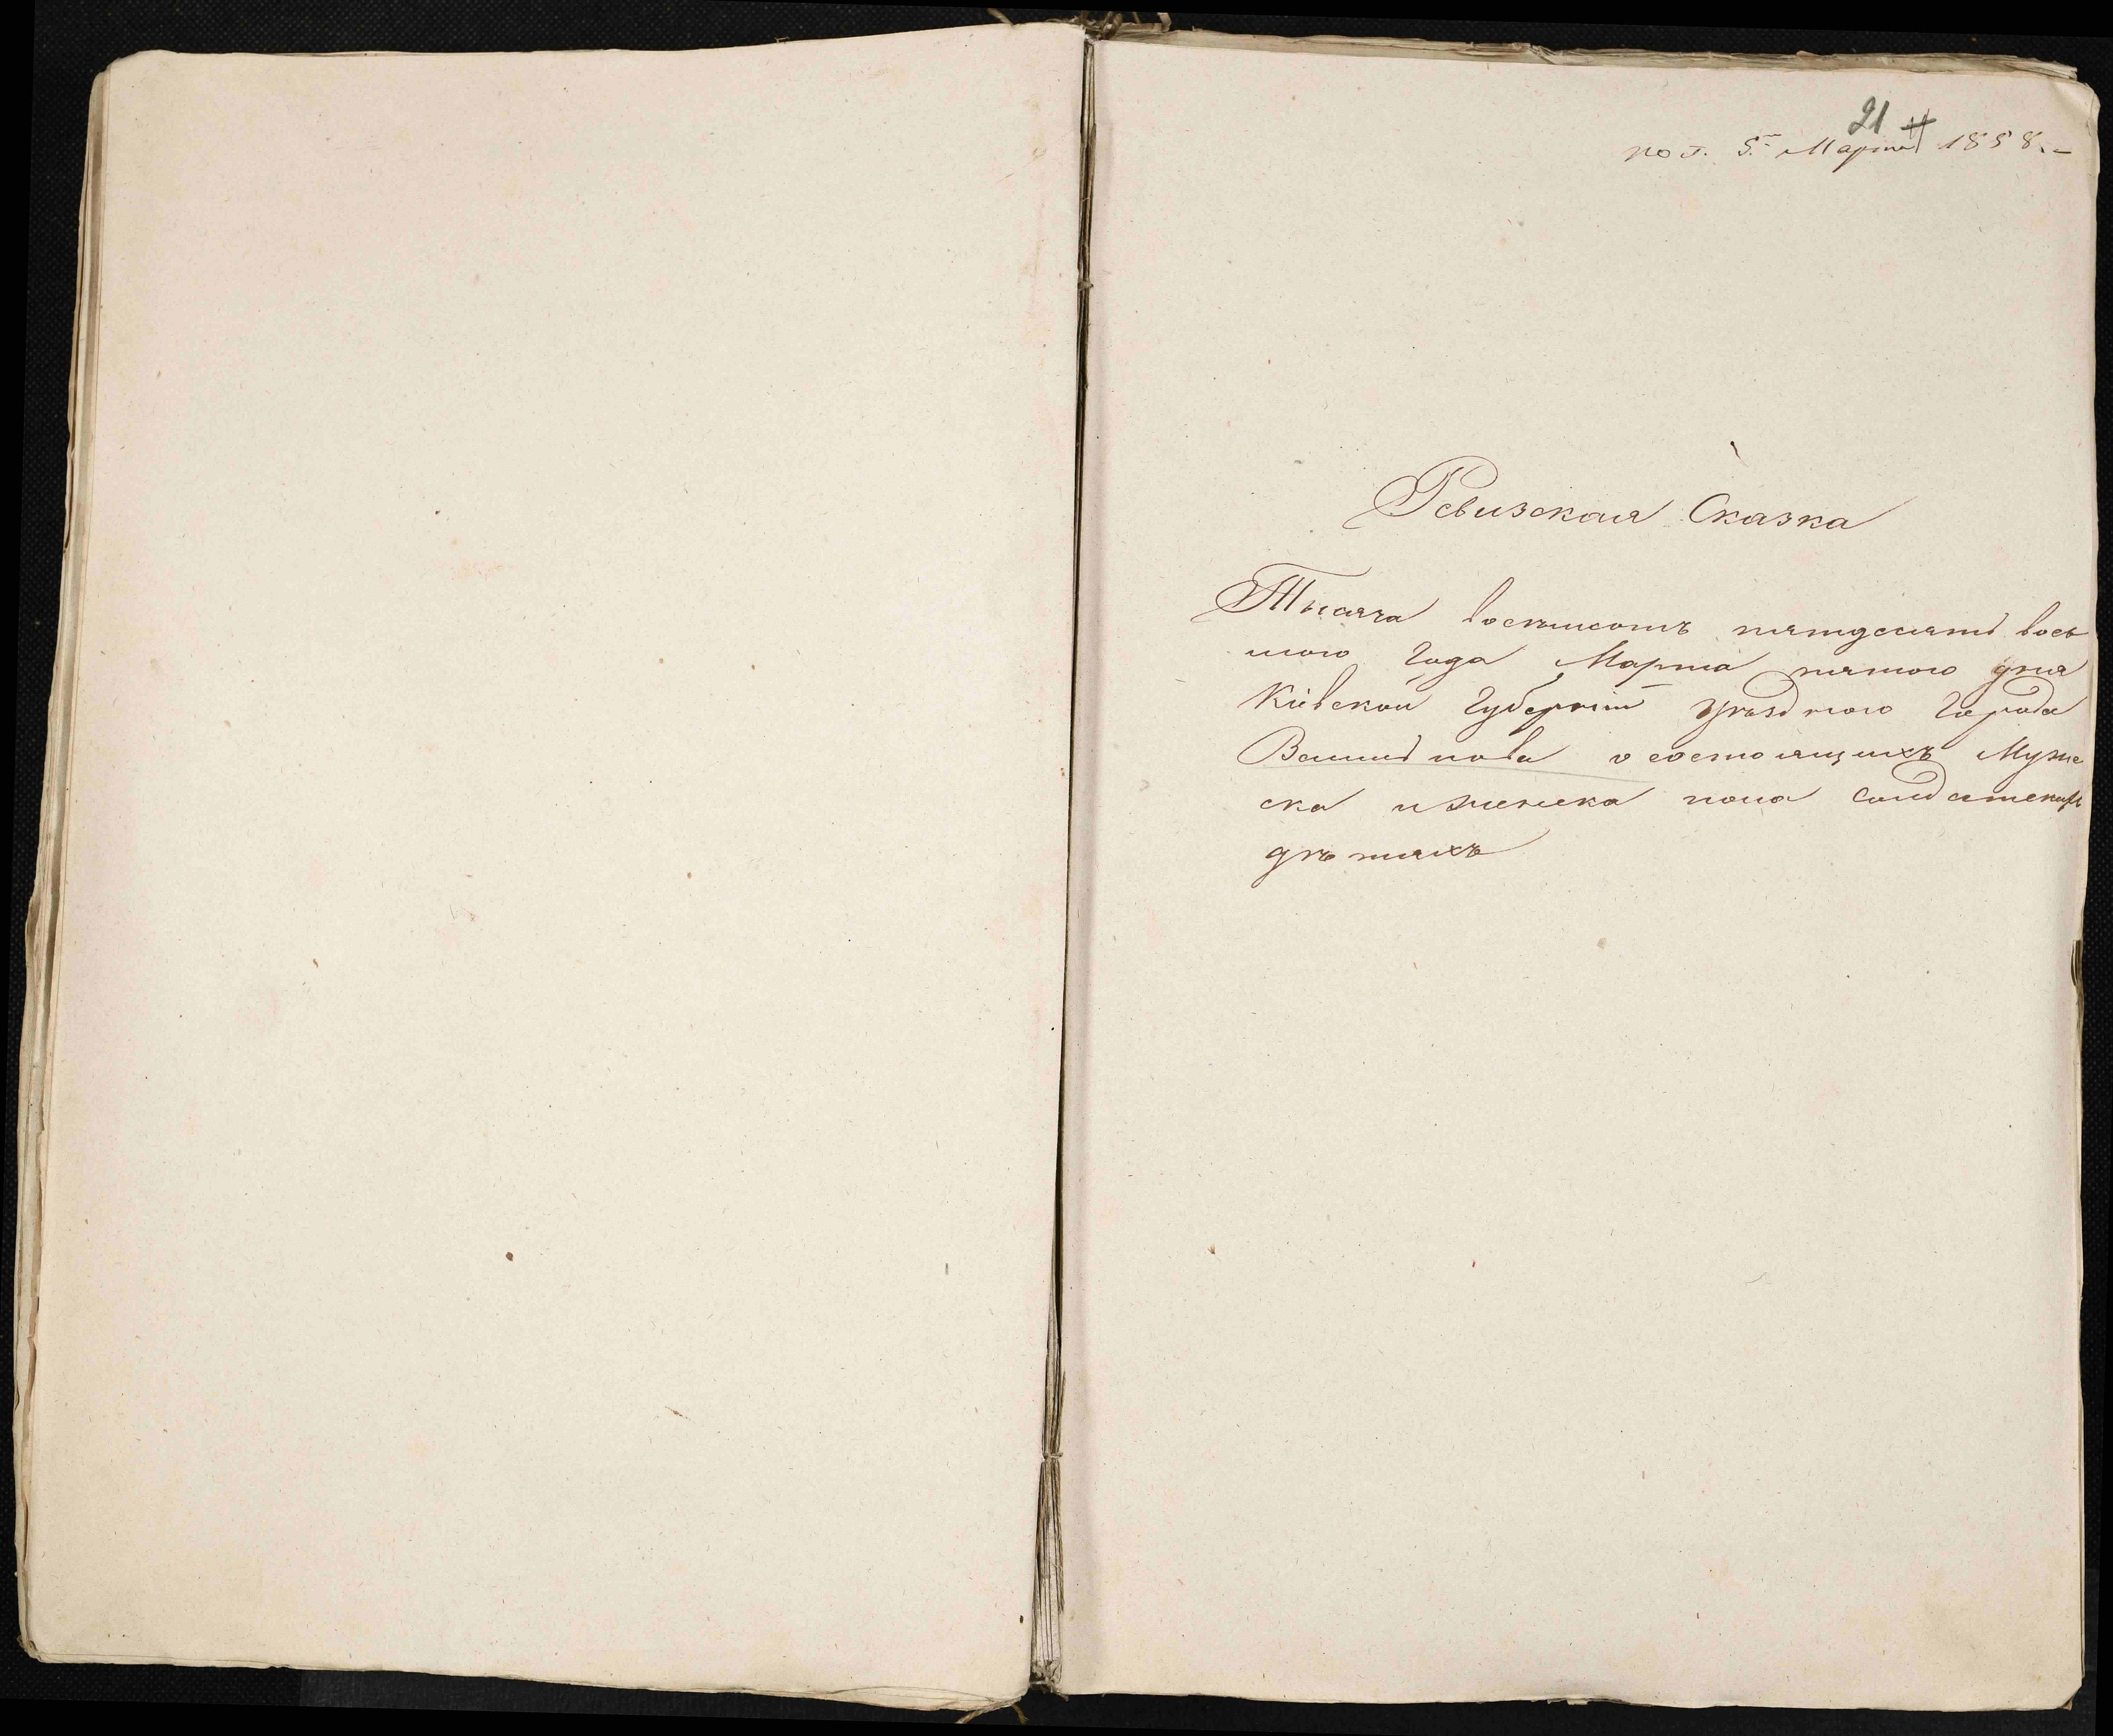 21
пол. 5. Марта 1858.
Ревизская Сказка
Тысяча восемьсотъ пятдесятъ вось
мого Года Марта пятого дня
Кіевской Губерніи Уѣзднаго Города
Василькова о состоящихъ Муже
ска и женска пола Солдатскихъ
дѣтяхъ